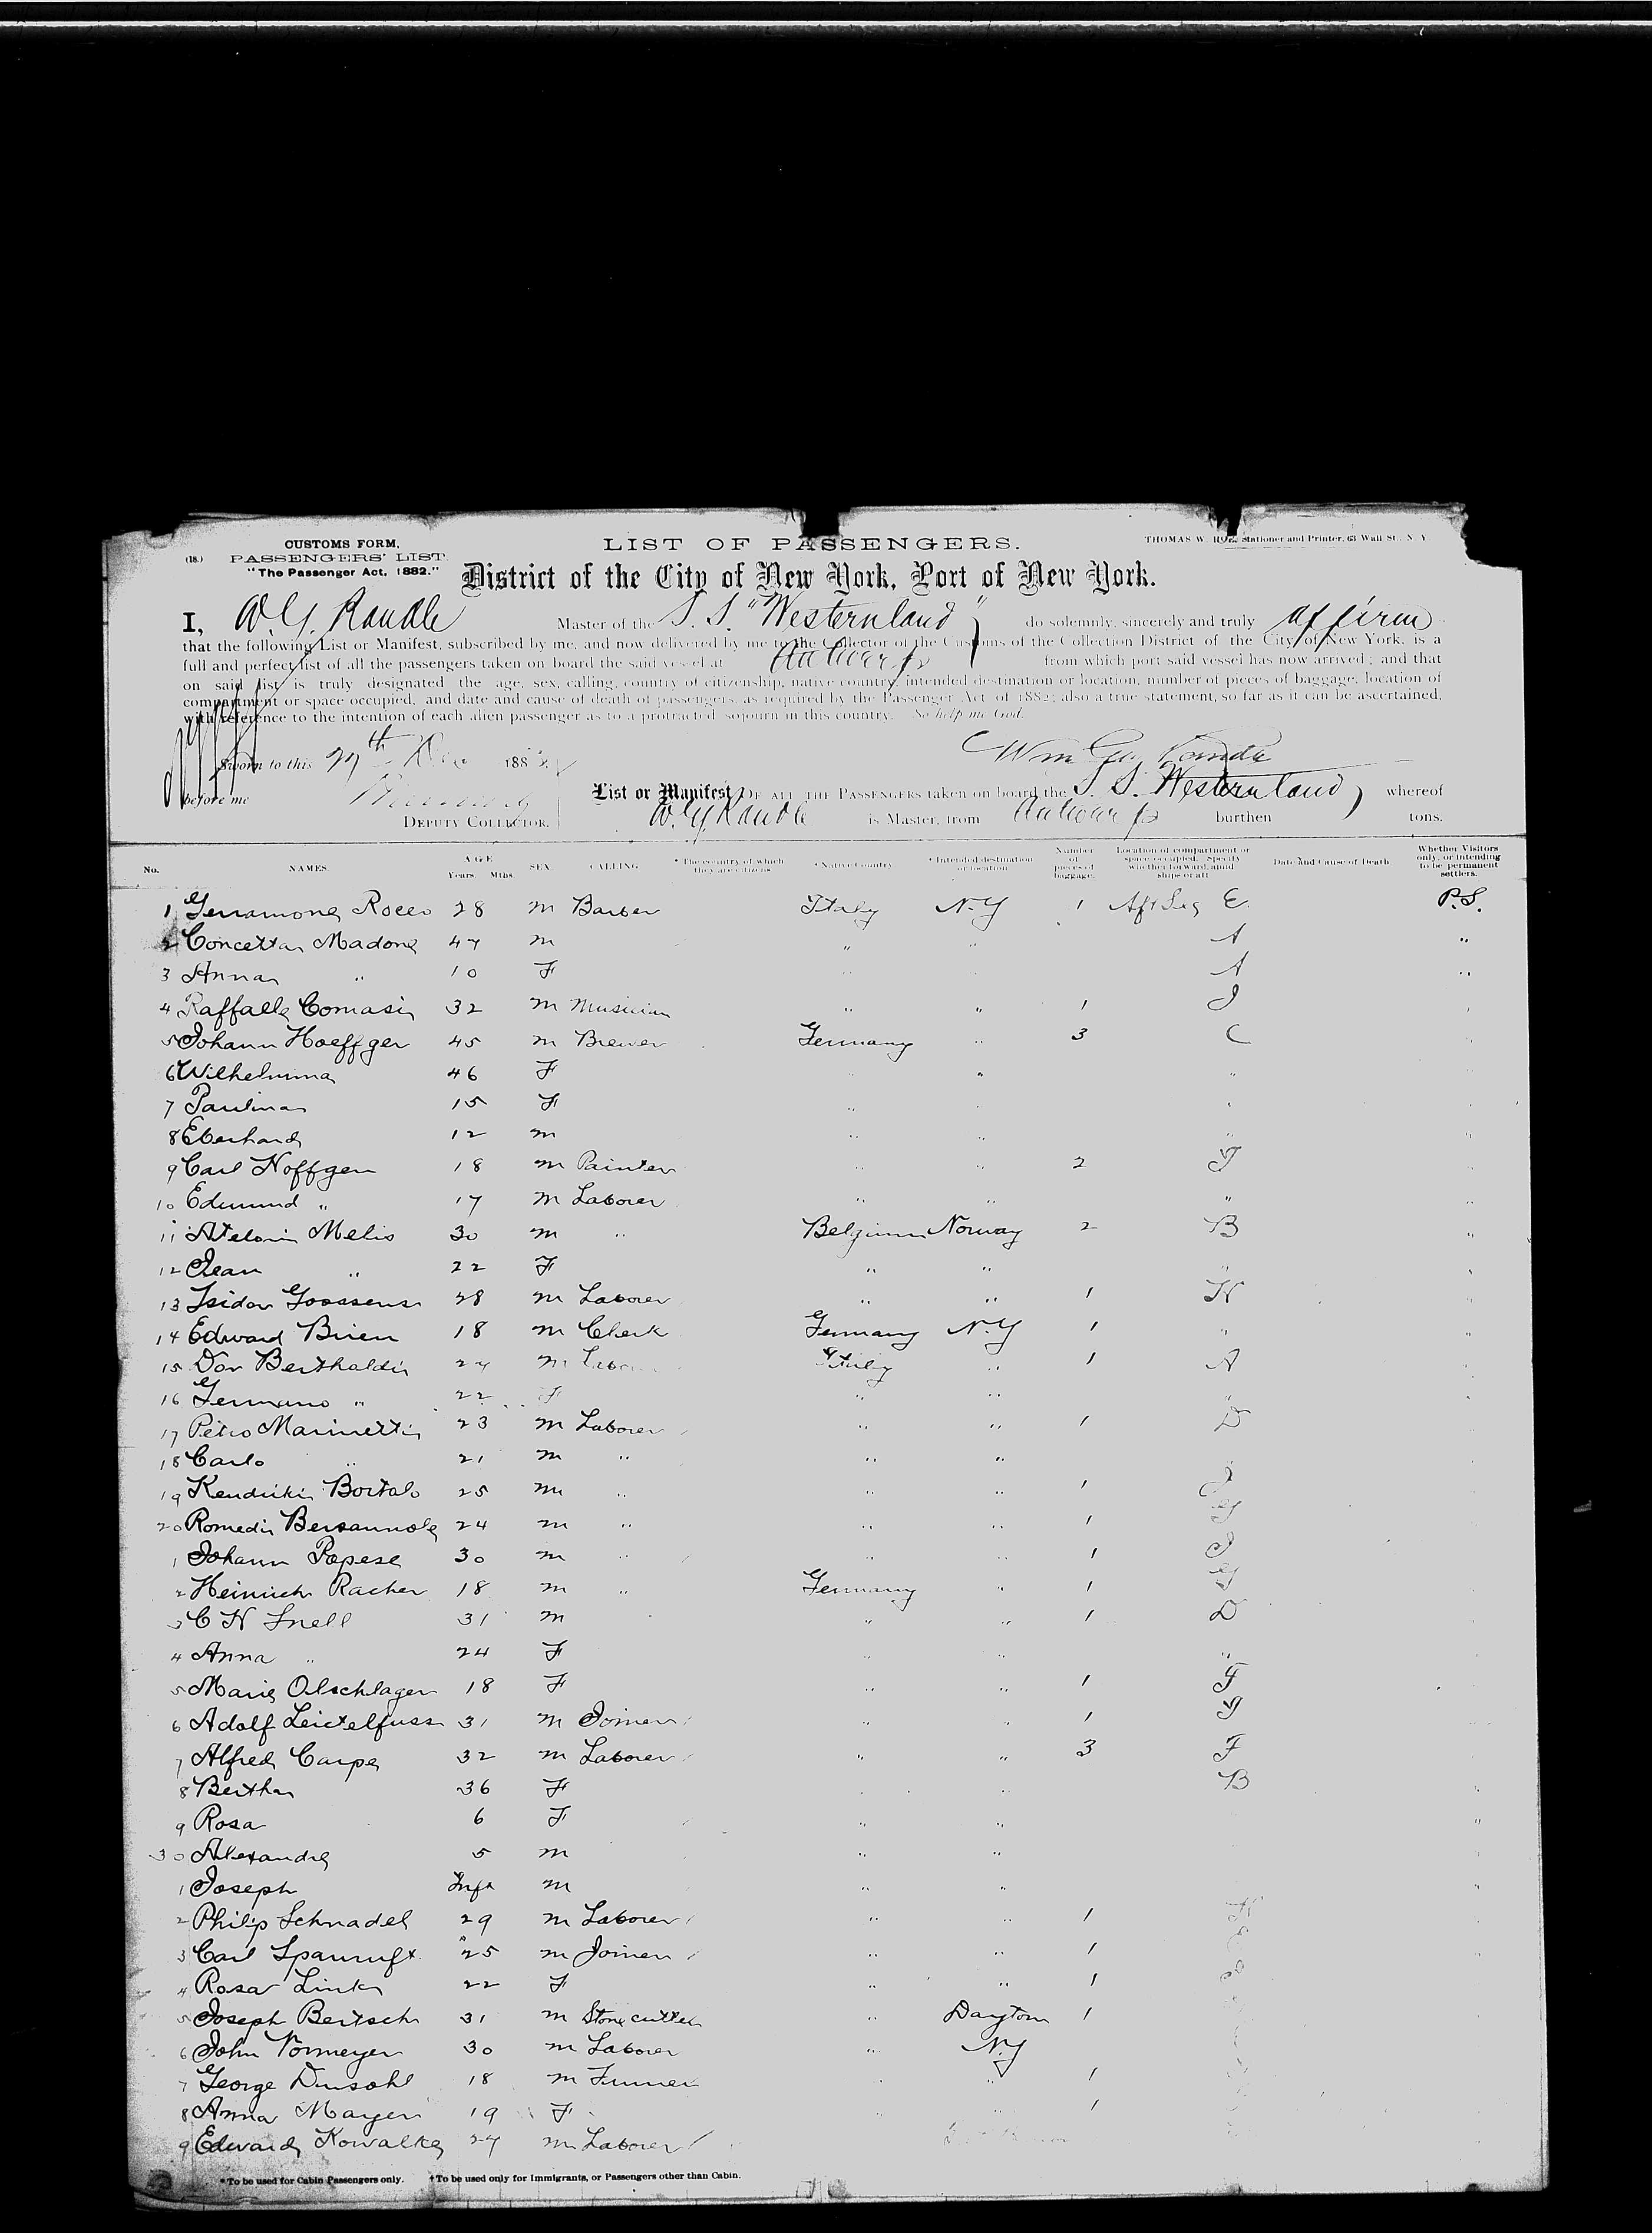 CUSTOMS FORM,
(18.) PASSENGERS' LIST.
"The Passenger Act, 1882."
LIST OF PASSENGERS.
THOMAS W. Stationer and Printer, 63 Wall St., N. Y.
District of the City of New York, Port of New York.
I, W. G. Randle Master of the S. S. "Westernland" do solemnly, sincerely and truly affirm
that the following List or Manifest, subscribed by me, and now delivered by me to the Collector of the Customs of the Collection District of the City of New York, is a
full and perfect list of all the passengers taken on board the said vessel at Antwerp from which port said vessel has now arrived; and that
on said list is truly designated the age, sex, calling, country of citizenship, native country, intended destination or location, number of pieces of baggage, location of
compartment or space occupied, and date and cause of death of passengers, as required by the Passenger Act of 1882; also a true statement, so far as it can be ascertained,
with reference to the intention of each alien passenger as to a protracted sojourn in this country. So help me God.
Sworn to this th 188
before me
DEPUTY COLLECTOR.
List or Manifest OF ALL THE PASSENGERS taken on board the S. S. Westernland, whereof
W. G. Randle is Master, from Antwerp burthen tons.
No. NAMES AGE Years. Mths. SEX. CALLING * The country of which they are citizens * Native Country * Intended destination or location Number of pieces of baggage. Location of compartment or space occupied. Specify whether forward, amid ships or aft Date and Cause of Death. Whether Visitors only, or intending to be permanent settlers.
1 Rocco 28 m Barber Italy N.Y 1 Aft E. P.S.
2 Concetta Madona 47 m " " A "
3 Anna " 10 F " " A "
4 Raffaele Comasi 32 m Musician " " 1 J
5 Johann Hoeffger 45 m Brewer Germany " 3 C "
6 Wilhelmina 46 F " " " "
7 Paulina 15 F " " " "
8 Eberhard 12 m " " " "
9 Carl Hoffgen 18 m Painter " " 2 "
10 Edmund " 17 m Laborer " " " "
11 Melis 30 m " Belgium Norway 2 B "
12 Jean " 22 F " " " "
13 Isidor Goossens 28 m Laborer " " 1 H
14 Edward Biren 18 m Clerk Germany N.Y 1 " "
15 Don Berthaldi 24 m Italy " 1 A
16 Germano " 22 F " " "
17 Petro Marinetti 23 m Laborer " " 1 D
18 Carlo " 21 m " " "
19 Bortalo 25 m " " " 1 J
20 Romedi 24 m " " " 1 G
1 Johann Papese 30 m " " " 1 J
2 Heinrich Racher 18 m " Germany " 1 G
3 C H Snell 31 m " " 1 D
4 Anna " 24 F " " "
5 Marie Olschlager 18 F " " 1 F
6 Adolf Leistelfuss 31 m Joiner " " 1 G
7 Alfred Carpe 32 m Laborer " " 3 F
8 Bertha 36 F " " B
9 Rosa 6 F " " "
30 Alexandre 5 m " "
1 Joseph Inft m " " "
2 Philip Schnadel 29 m Laborer " " 1
3 Carl 25 m Joiner " " 1
4 Rosa Link 22 F " " 1
5 Joseph Bertsch 31 m Stone cutter " Dayton 1
6 John Vormeyer 30 m Laborer " N.Y
7 George 18 m " " 1
8 Anna Mayer 19 F " " 1
9 Edward Kowalke 27 m Laborer
* To be used for Cabin Passengers only. † To be used only for Immigrants, or Passengers other than Cabin.